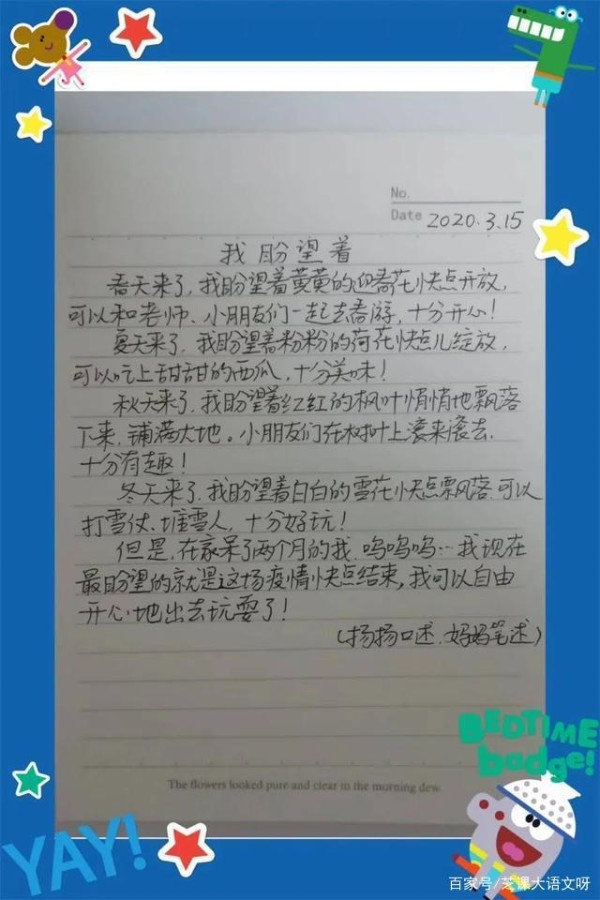 No.
Date 2020.3.15
我盼望着
春天来了,我盼望着黄黄的迎春花快点开放,
可以和老师、小朋友们一起去春游,十分开心!
夏天来了,我盼望着粉粉的荷花快点儿绽放,
可以吃上甜甜的西瓜,十分美味!
秋天来了,我盼望着红红的枫叶悄悄地飘落
下来,铺满大地。小朋友们在树叶上滚来滚去,
十分有趣!
冬天来了,我盼望着白白的雪花快点飘落,可以
打雪仗、堆雪人,十分好玩!
但是,在家呆了两个月的我,呜呜呜…我现在
最盼望的就是这场疫情快点结束,我可以自由
开心地出去玩耍了!
(扬扬口述,妈妈笔述)
The flowers looked pure and clear in the morning dew
BEDTIME
badge!
YAY!
百家号/芝课大语文呀